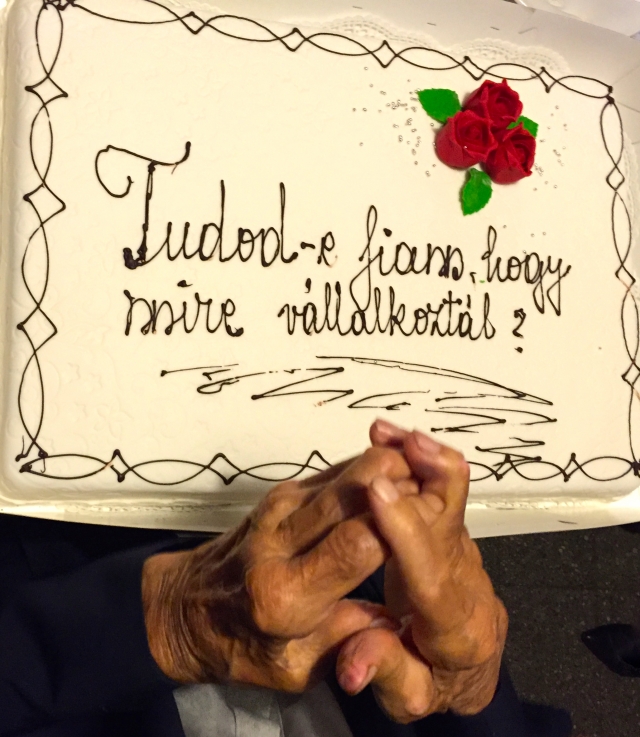 Tudod-e fiam, hogy
mire vállalkoztál?